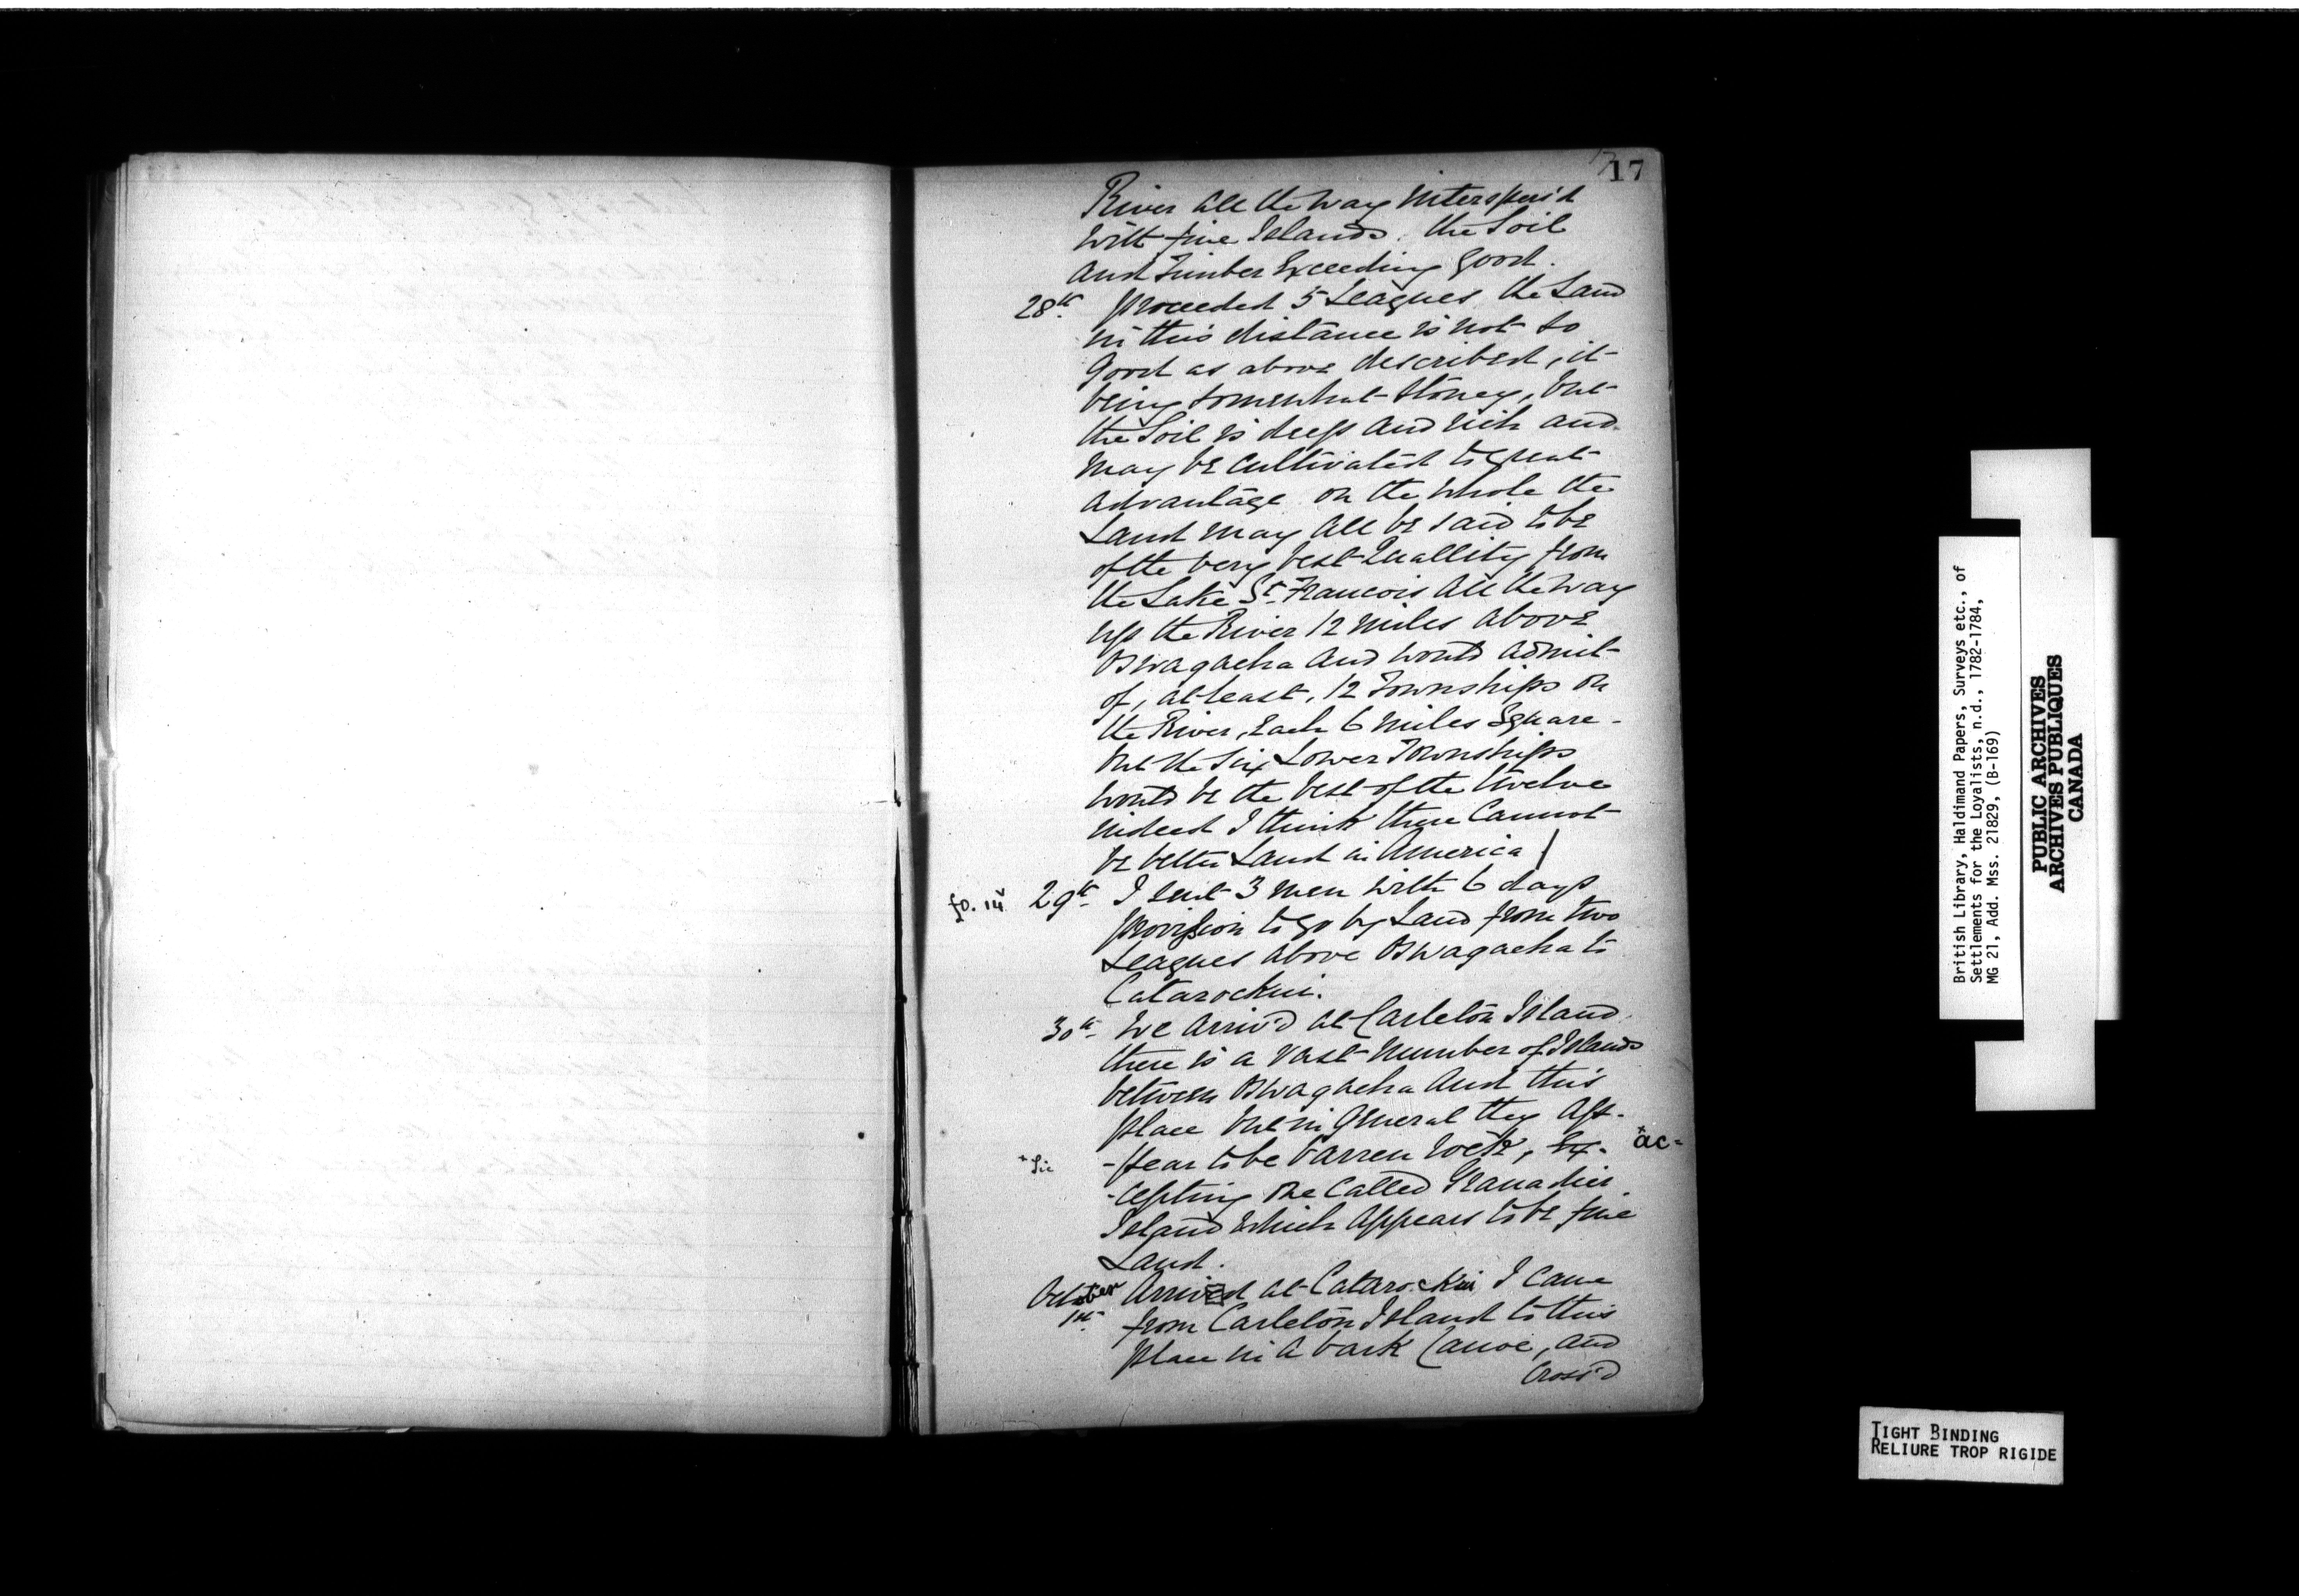 17
River all the way interspers'd
with fine Islands. the Soil
and Timber Exceeding good.
28th proceeded 5 Leagues the Land
in this distance is not so
good as above described, it
being somewhat Stoney, but
the Soil is deep and rich and
may be cultivated to great
advantage on the whole the
Land may all be said to be
of the very best Quallity from
the Lake St. Francois all the way
up the River 12 miles above
Oswagacha and would admit
of, at least, 12 Townships on
the River, Each 6 miles Square -
but the six Lower Townships
would be the best of the twelve
indeed I think there Cannot
be better Land in America /
fo. 14v 29th I sent 3 men with 6 days
provision to go by Land from two
Leagues above Oswagacha to
Catarockui.
30th We arriv'd at Carleton Island
there is a vast number of Islands
between Oswagacha and this
place but in General they ap-
+Sic -pear to be barren rock, Ex- +ac=
-cepting one called Granadier
Island which appears to be fine
Land.
October 1st Arrived at Catarockui I came
from Carleton Island to this
place in a bark Canoe, and
Cross'd
British Library, Haldimand Papers, Surveys etc., of
Settlements for the Loyalists, n.d., 1782-1784,
MG 21, Add. Mss. 21829, (B-169)
PUBLIC ARCHIVES
ARCHIVES PUBLIQUES
CANADA
TIGHT BINDING
RELIURE TROP RIGIDE